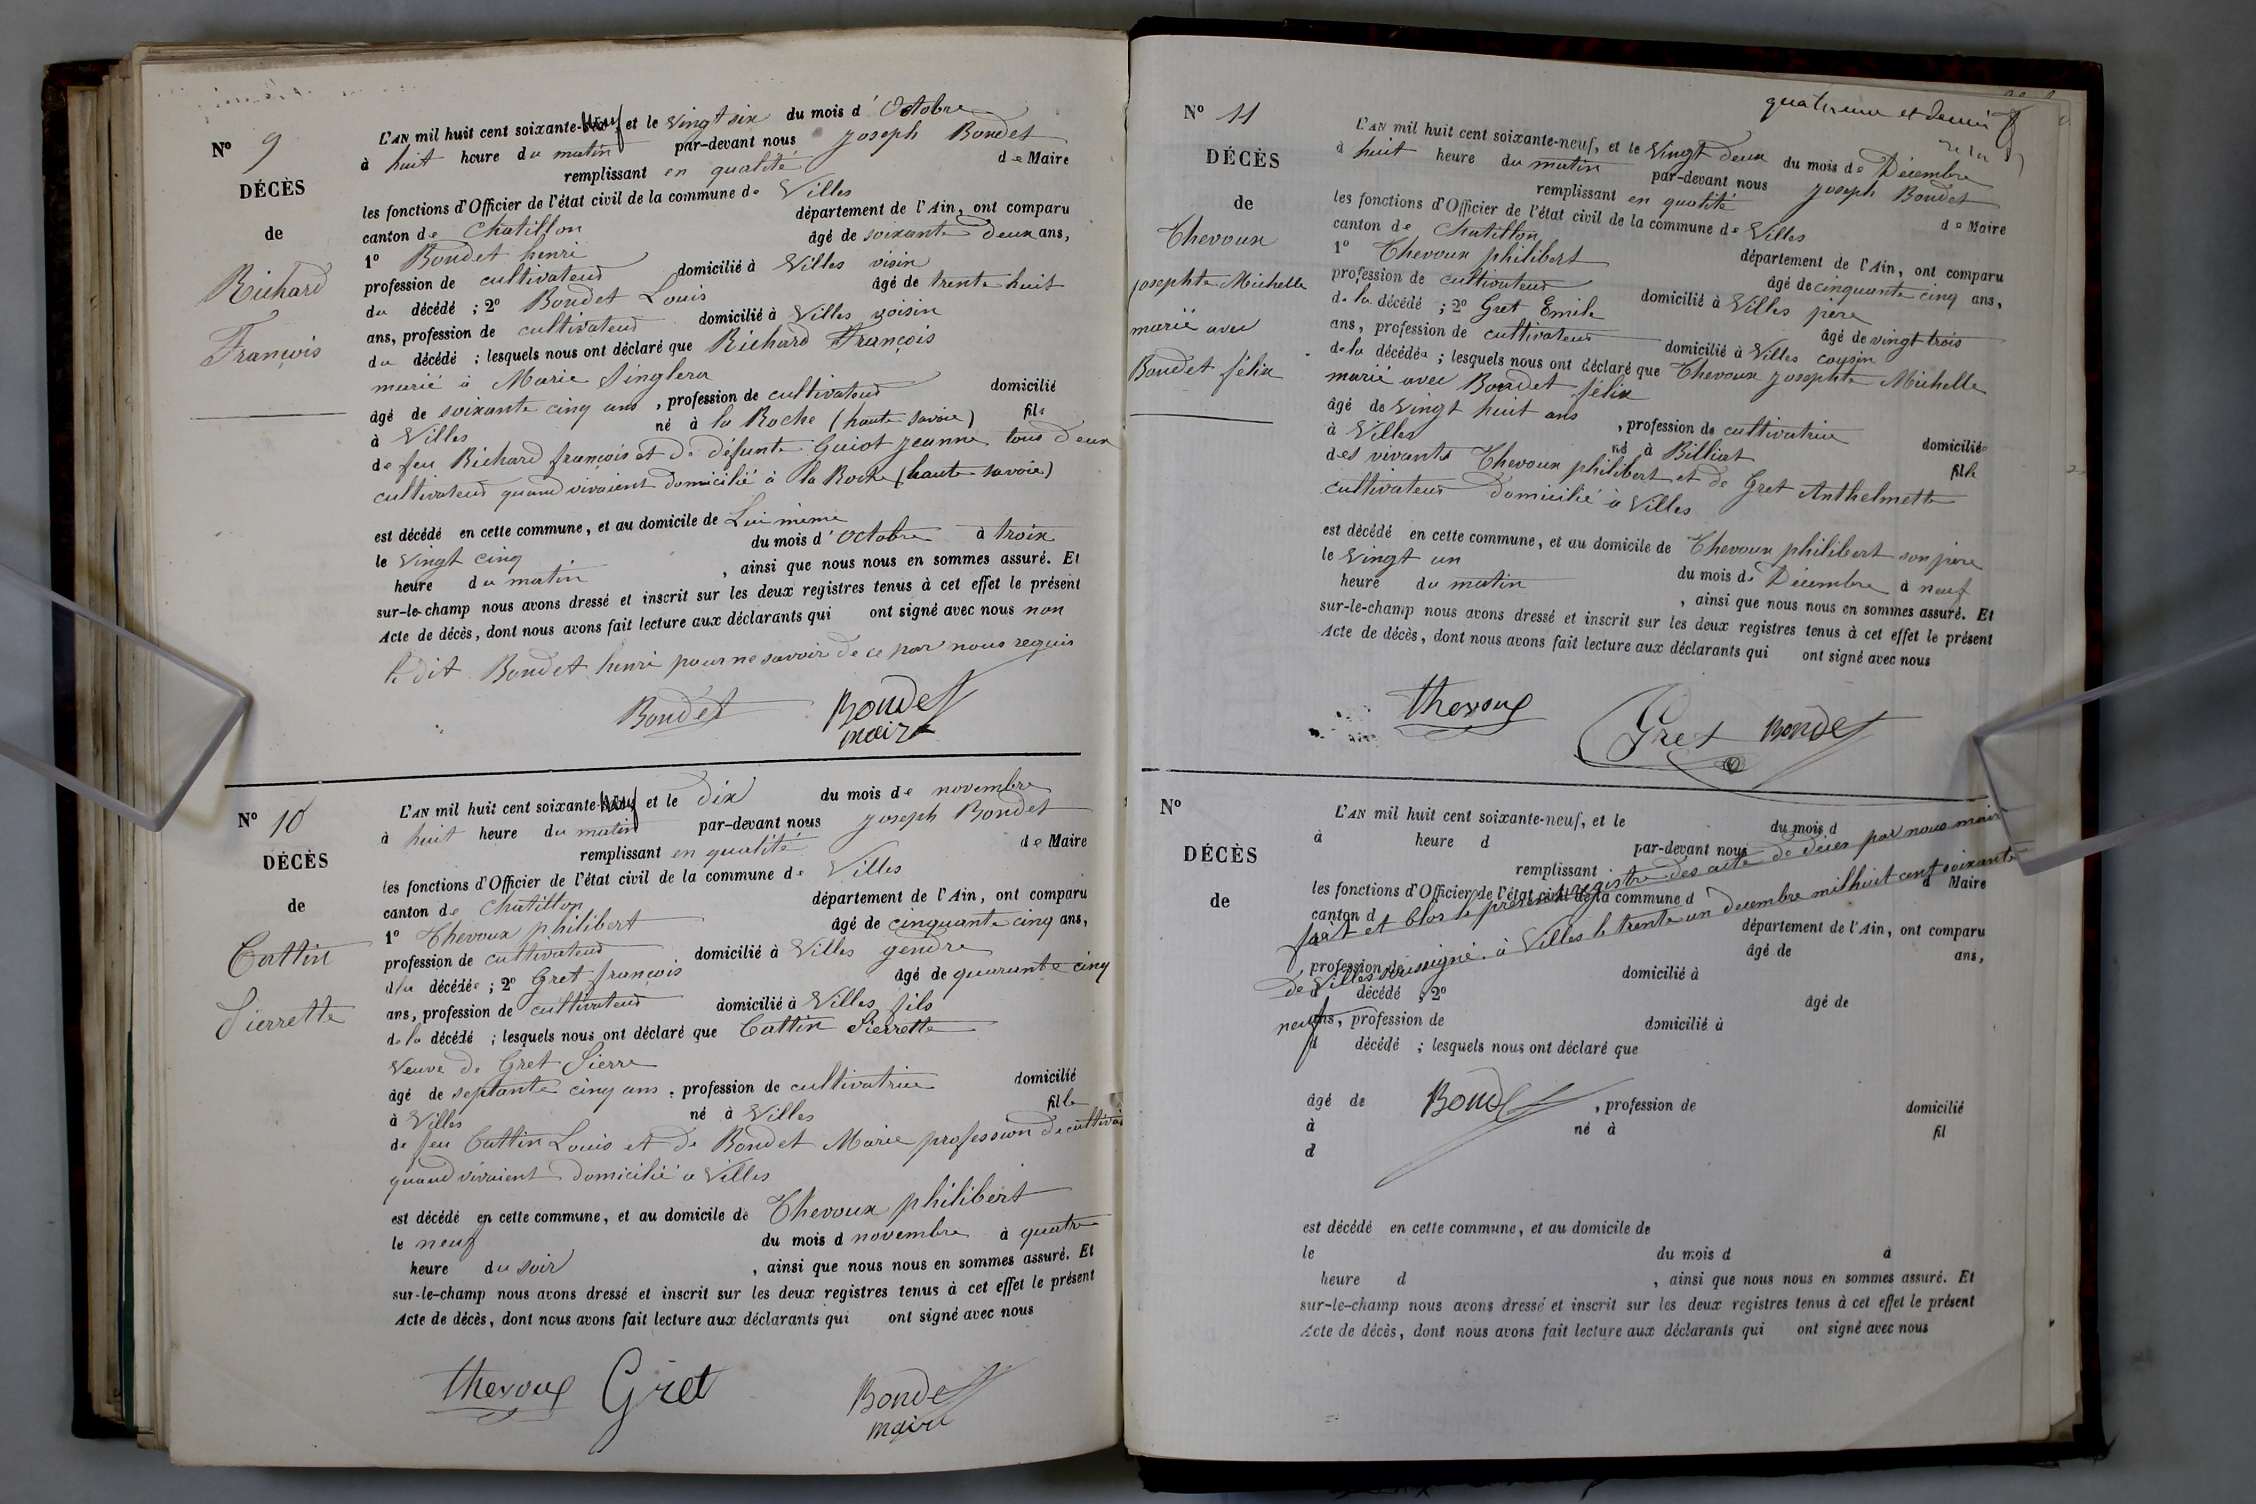 Nº 9
DÉCÈS
de
Richard
François
L'AN mil huit cent soixante-neuf et le vingt six du mois d'Octobre
à huit heure du matin par-devant nous Joseph Bondet
remplissant en qualité de Maire
les fonctions d'Officier de l'état civil de la commune de Villes
canton de Chatillon département de l'Ain, ont comparu
1º Bondet henri âgé de soixante deux ans,
profession de cultivateur domicilié à Villes voisin
du décédé ; 2º Bondet Louis âgé de trente huit
ans, profession de cultivateur domicilié à Villes voisin
du décédé ; lesquels nous ont déclaré que Richard François
marié à Marie Singlera
âgé de soixante cinq ans , profession de cultivateur domicilié
à Villes né à la Roche (haute savoie) fils
de feu Richard françois et de défunte Guiot jeanne tous deux
cultivateurs quand vivaient domicilié à la Roche (haute savoie)
est décédé en cette commune, et au domicile de Lui même
le vingt cinq du mois d'octobre à trois
heure du matin , ainsi que nous nous en sommes assuré. Et
sur-le-champ nous avons dressé et inscrit sur les deux registres tenus à cet effet le présent
Acte de décès, dont nous avons fait lecture aux déclarants qui ont signé avec nous non
le dit Bondet henri pour ne savoir de ce par nous requis
Bondet Bondet
maire
Nº 10
DÉCÈS
de
Cattin
Pierrette
L'AN mil huit cent soixante-neuf et le dix du mois de novembre
à huit heure du matin par-devant nous Joseph Bondet
remplissant en qualité de Maire
les fonctions d'Officier de l'état civil de la commune de Villes
canton de Chatillon département de l'Ain, ont comparu
1º Thevoux philibert âgé de cinquante cinq ans,
profession de cultivateur domicilié à Villes gendre
d la décédée ; 2º Gret françois âgé de quarante cinq
ans, profession de cultivateur domicilié à Villes fils
de la décédé ; lesquels nous ont déclaré que Cattin Pierrette
Veuve de Gret Pierre
âgé de septante cinq ans , profession de cultivatrice domicilié
à Villes né à Villes fille
de feu Cattin Louis et de Bondet Marie profession de
quand vivaient domicilié à Villes
est décédé en cette commune, et au domicile de Thevoux philibert
le neuf du mois d novembre à quatre
heure du soir , ainsi que nous nous en sommes assuré. Et
sur-le-champ nous avons dressé et inscrit sur les deux registres tenus à cet effet le présent
Acte de décès, dont nous avons fait lecture aux déclarants qui ont signé avec nous
thevoux Gret Bondet
maire
Nº 11
DÉCÈS
de
Thevoux
josephte Michelle
marié avec
Bondet félix
L'AN mil huit cent soixante-neuf, et le vingt deux du mois de Décembre
à huit heure du matin par-devant nous Joseph Bondet
remplissant en qualité de Maire
les fonctions d'Officier de l'état civil de la commune de Villes
canton de Chatillon département de l'Ain, ont comparu
1º Thevoux philibert âgé de cinquante cinq ans,
profession de cultivateur domicilié à Villes père
de la décédé ; 2º Gret Emile âgé de vingt trois
ans, profession de cultivateur domicilié à Villes cousin
de la décédée ; lesquels nous ont déclaré que Thevoux josephte Michelle
marié avec Bondet félix
âgé de vingt huit ans , profession de cultivatrice domiciliée
à Villes né à Billiat fille
des vivants Thevoux philibert et de Gret Anthelmette
cultivateurs domicilié à Villes
est décédé en cette commune, et au domicile de Thevoux philibert son père
le vingt un du mois de Décembre à neuf
heure du matin , ainsi que nous nous en sommes assuré. Et
sur-le-champ nous avons dressé et inscrit sur les deux registres tenus à cet effet le présent
Acte de décès, dont nous avons fait lecture aux déclarants qui ont signé avec nous
thevoux Gret Bondet
Nº
DÉCÈS
de
L'AN mil huit cent soixante-neuf, et le du mois d
à heure d par-devant nous
remplissant d Maire
les fonctions d'Officier de l'état civil de la commune d
canton d département de l'Ain, ont comparu
âgé de ans,
profession de domicilié à
d décédé ; 2º âgé de
ans, profession de domicilié à
d décédé ; lesquels nous ont déclaré que
fait et Clos le présent registre des acte de décès par nous maire
de Villes soussigné à Villes le trente un decembre mil huit cent soixante
neuf
Bondet
âgé de , profession de domicilié
à né à fil
d
est décédé en cette commune, et au domicile de
le du mois d à
heure d , ainsi que nous nous en sommes assuré. Et
sur-le-champ nous avons dressé et inscrit sur les deux registres tenus à cet effet le présent
Acte de décès, dont nous avons fait lecture aux déclarants qui ont signé avec nous